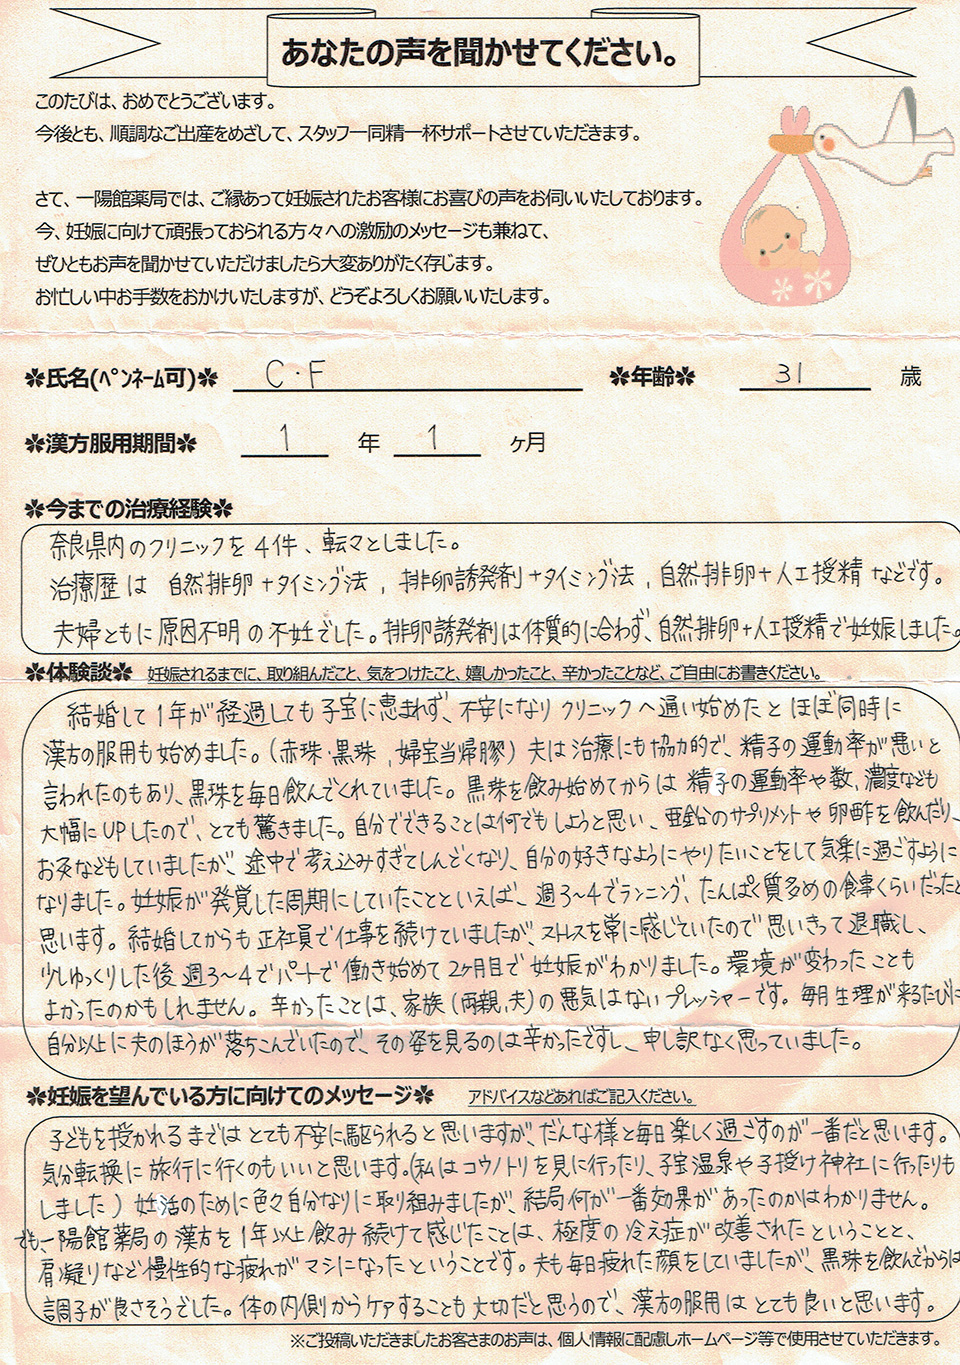 あなたの声を聞かせてください。
このたびは、おめでとうございます。
今後とも、順調なご出産をめざして、スタッフ一同精一杯サポートさせていただきます。
さて、一陽館薬局では、ご縁あって妊娠されたお客様にお喜びの声をお伺いいたしております。
今、妊娠に向けて頑張っておられる方々への激励のメッセージも兼ねて、
ぜひともお声を聞かせていただけましたら大変ありがたく存じます。
お忙しい中お手数をおかけいたしますが、どうぞよろしくお願いいたします。
✽氏名(ペンネーム可)✽ C・F ✽年齢✽ 31 歳
✽漢方服用期間✽ 1 年 1 ヶ月
✽今までの治療経験✽
奈良県内のクリニックを4件、転々としました。
治療歴は 自然排卵+タイミング法, 排卵誘発剤+タイミング法, 自然排卵+人工授精 などです。
夫婦ともに原因不明の不妊でした。排卵誘発剤は体質的に合わず、自然排卵+人工授精で妊娠しました。
✽体験談✽ 妊娠されるまでに、取り組んだこと、気をつけたこと、嬉しかったこと、辛かったことなど、ご自由にお書きください。
結婚して1年が経過しても子宝に恵まれず、不安になりクリニックへ通い始めたとほぼ同時に
漢方の服用も始めました。(赤珠・黒珠, 婦宝当帰膠) 夫は治療にも協力的で、精子の運動率が悪いと
言われたのもあり、黒珠を毎日飲んでくれていました。黒珠を飲み始めてからは精子の運動率や数,濃度なども
大幅にUPしたので、とても驚きました。自分でできることは何でもしようと思い、亜鉛のサプリメントや卵酢を飲んだり、
お灸などもしていましたが、途中で考え込みすぎてしんどくなり、自分の好きなようにやりたいことをして気楽に過ごすように
なりました。妊娠が発覚した周期にしていたことといえば、週3~4でランニング、たんぱく質多めの食事くらいだったと
思います。結婚してからも正社員で仕事を続けていましたが、ストレスを常に感じていたので思いきって退職し、
少しゆっくりした後週3~4でパートで働き始めて2ヶ月目で妊娠がわかりました。環境が変わったことも
よかったのかもしれません。辛かったことは、家族(両親,夫)の悪気はないプレッシャーです。毎月生理が来るたびに
自分以上に夫のほうが落ちこんでいたので、その姿を見るのは辛かったですし、申し訳なく思っていました。
✽妊娠を望んでいる方に向けてのメッセージ✽ アドバイスなどあればご記入ください。
子どもを授かれるまではとても不安に駆られると思いますが、だんな様と毎日楽しく過ごすのが一番だと思います。
気分転換に旅行に行くのもいいと思います。(私はコウノトリを見に行ったり、子宝温泉や子授け神社に行ったりも
しました) 妊活のために色々自分なりに取り組みましたが、結局何が一番効果があったのかはわかりません。
でも、一陽館薬局の漢方を1年以上飲み続けて感じたことは、極度の冷え症が改善されたということと、
肩凝りなど慢性的な疲れがマシになったということです。夫も毎日疲れた顔をしていましたが、黒珠を飲んでからは
調子が良さそうでした。体の内側からケアすることも大切だと思うので、漢方の服用はとても良いと思います。
※ご投稿いただきましたお客さまのお声は、個人情報に配慮しホームページ等で使用させていただきます。